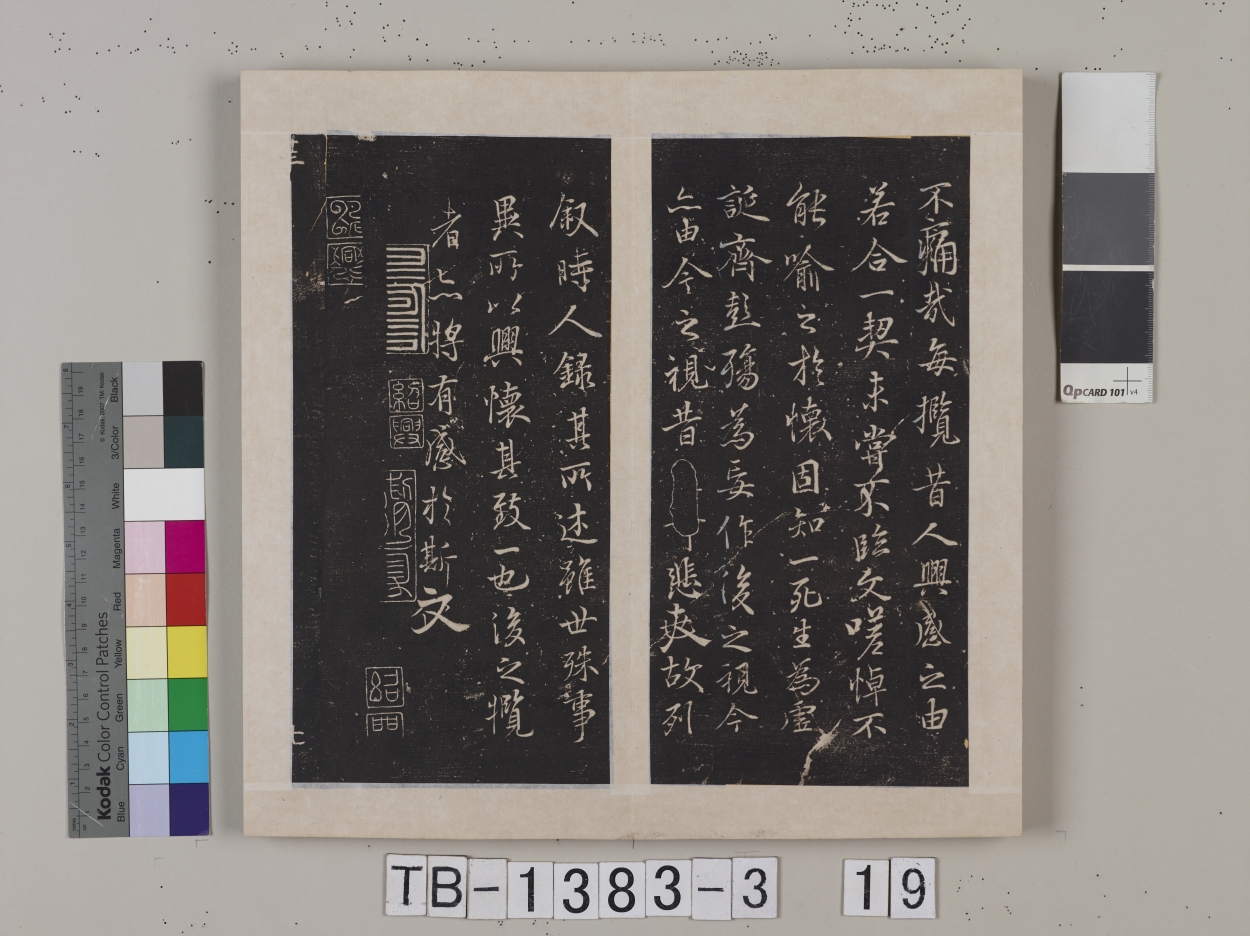 不痛哉每攬昔人興感之由
若合一契未嘗不臨文嗟悼不
能喻之於懷固知一死生為虛
誕齊彭殤為妄作後之視今
亦由今之視昔悲夫故列
叙時人錄其所述雖世殊事
異所以興懷其致一也後之攬
者亦將有感於斯文
紹興
QpCARD 101 v4
Kodak Color Control Patches
Blue Cyan Green Yellow Red Magenta White 3/Color Black
TB-1383-3 19